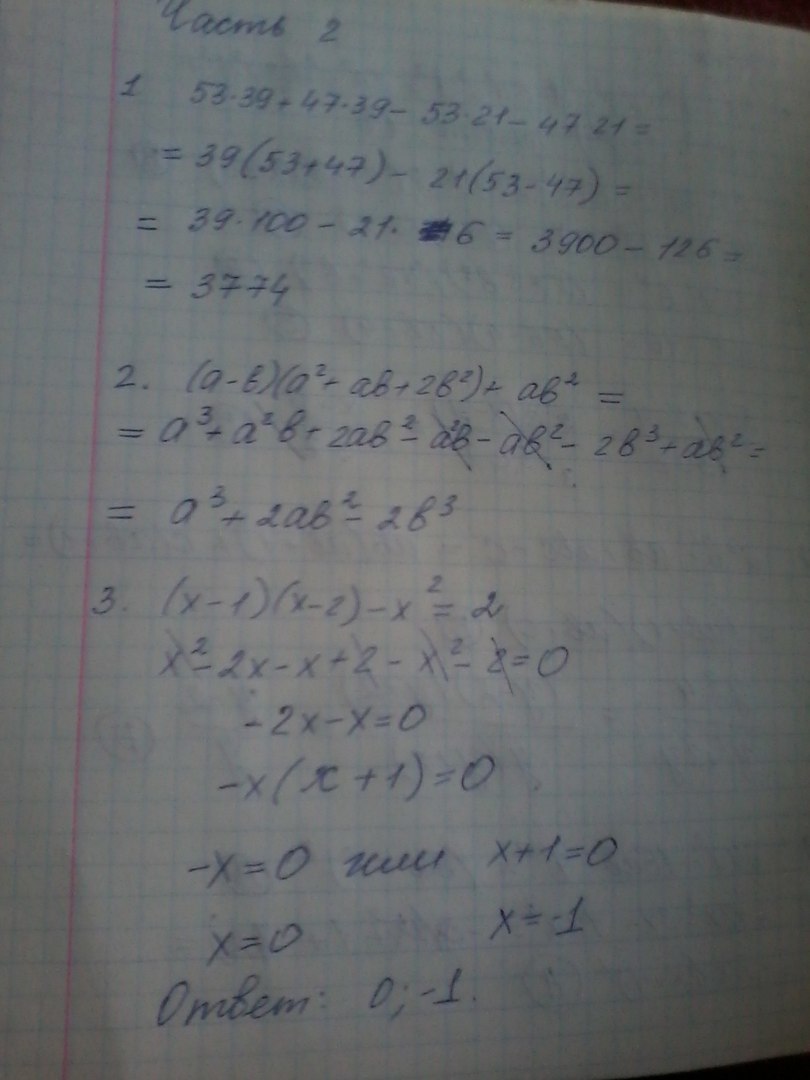 Часть 2
1 53·39+47·39- 53·21-47 21=
= 39(53+47)- 21(53-47) =
= 39·100-21· 6 = 3900-126=
= 3774
2. (а-в)(а²+ав+2в²)+ ав² =
= а³+а²в+2ав²-а²в-ав²-2в³+ав²=
= а³+2ав²-2в³
3. (х-1)(х-2)-х²=2
х²-2х-х+2-х²-2=0
-2х-х=0
-х(х+1)=0
-х=0 или х+1=0
х=0 х=-1
Ответ: 0;-1.